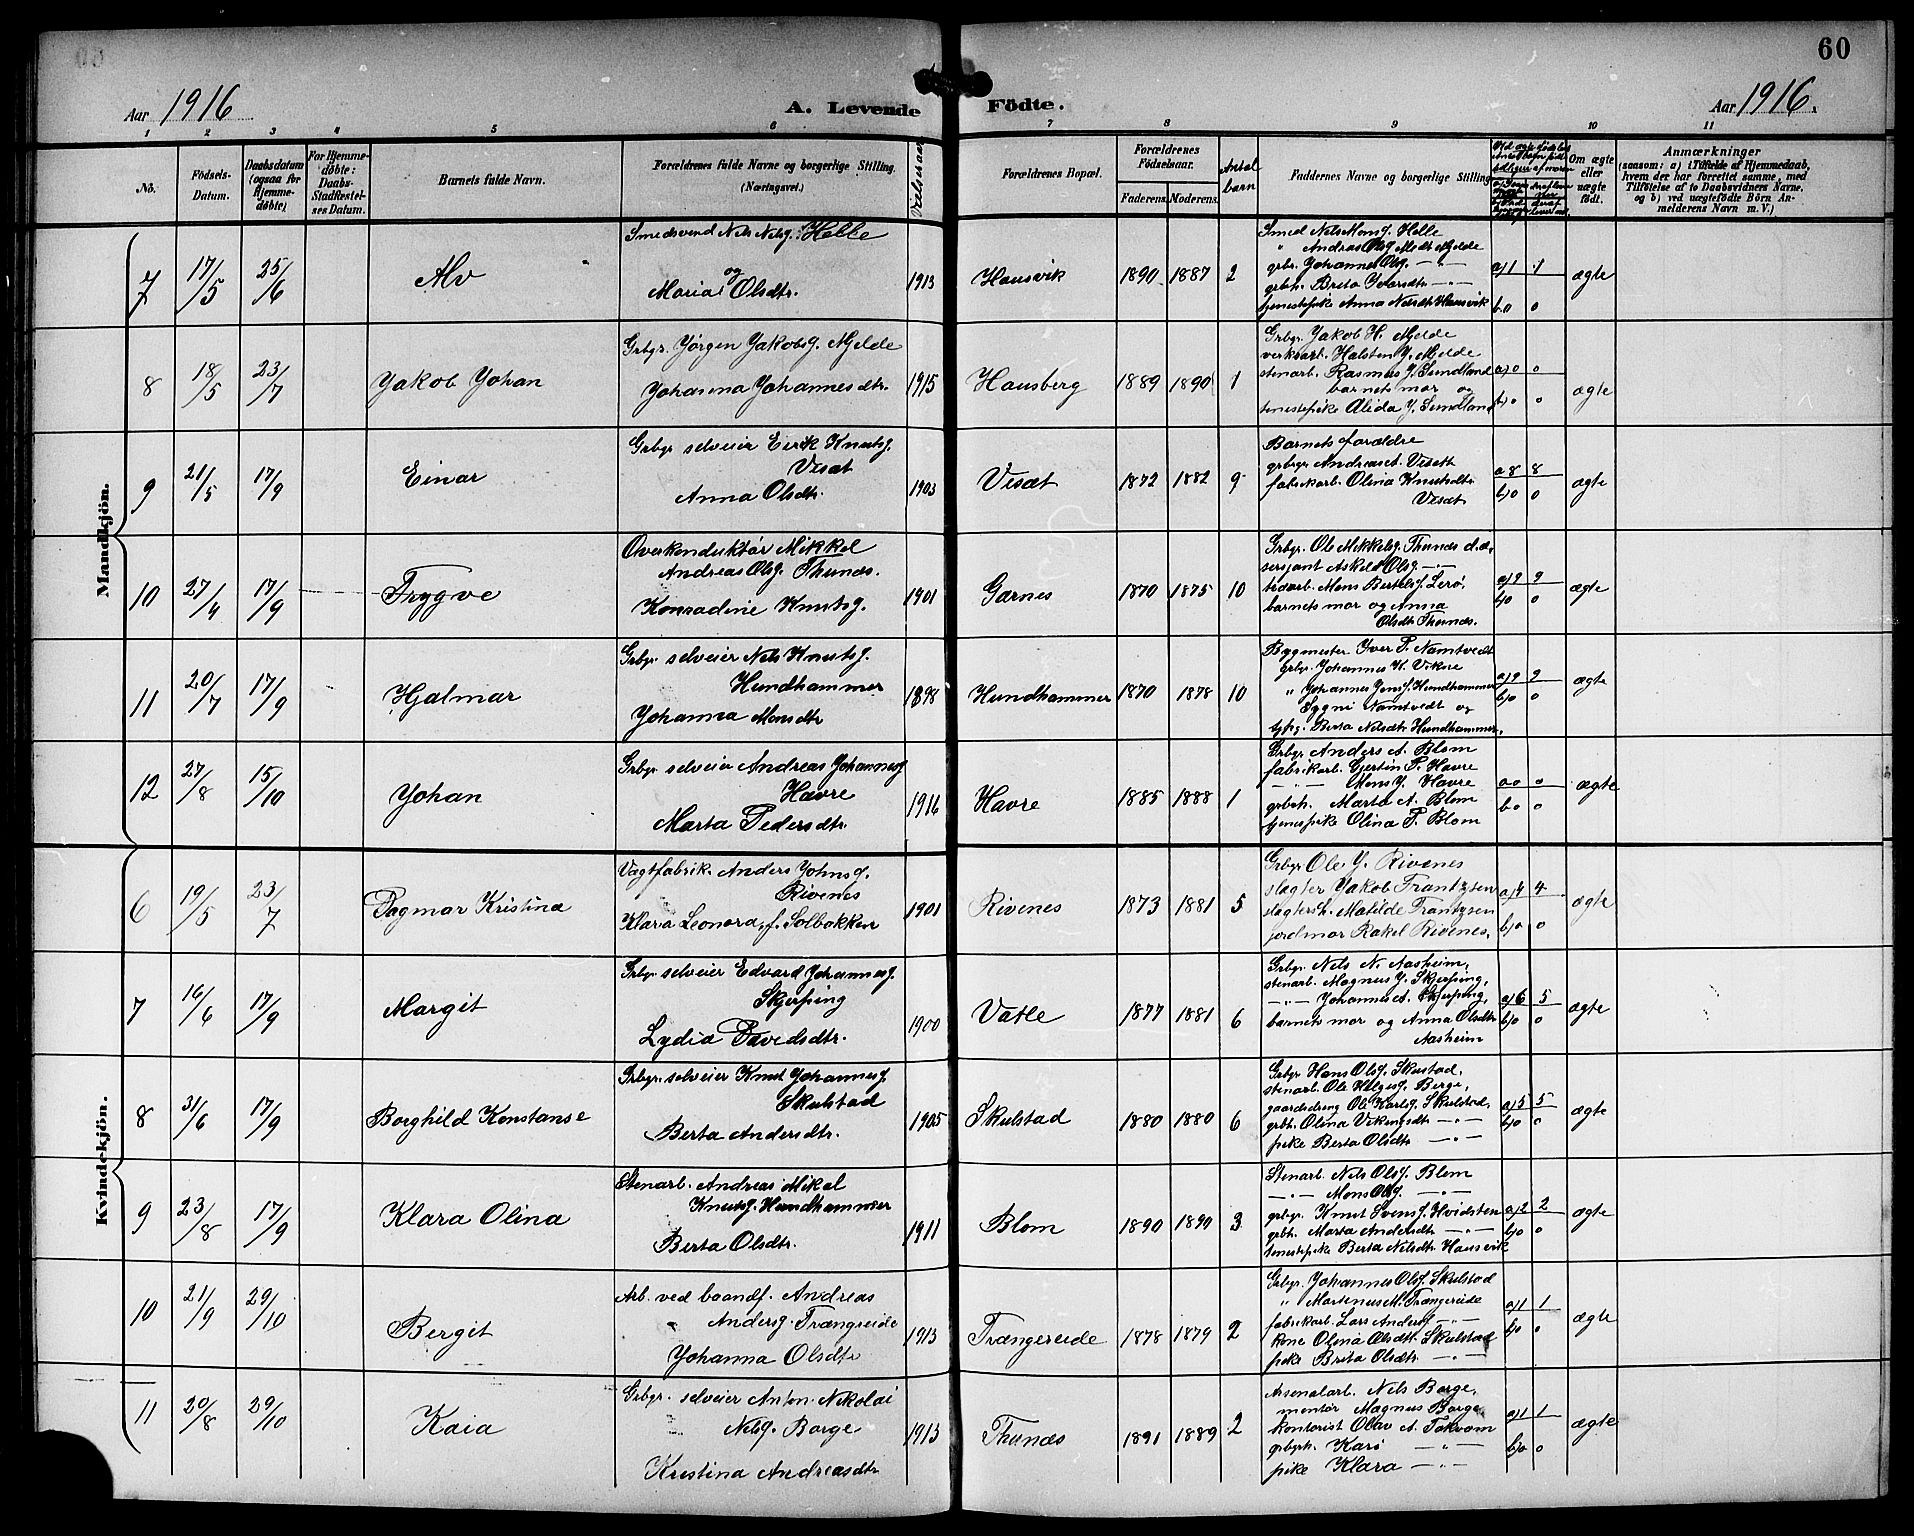 60
Aar 1916
A. Levende
Födte.
Aar 1916.
1 2 3 4 5 6 7 8 9 10 11
No.
Födsels-
Datum.
Daabsdatum
(ogsaa for
Hjemme-
døbte)
For Hjemme-
døbte:
Daabs-
Stadfæstel-
ses Datum.
Barnets fulde Navn.
Forældrenes fulde Navne og borgerlige Stilling.
(Næringsvei.)
Vielsesaar
Forældrenes Bopæl.
Forældrenes
Födselsaar.
Faderens. Moderens.
Antal
barn
Faddernes Navne og borgerlige Stilling
Om ægte
eller
uægte
født.
Anmærkninger
(saasom: a) i Tilfælde af Hjemmedaab,
hvem der har forrettet samme, med
Tilföielse af to Daabsvidners Navne,
og b) ved uægtefödte Börn An-
melderens Navn m. V.)
Mandkjön.
7 17/5 25/6 Alv
Smedsvend Nels Nelsg. Helle
og
Maria Olsdtr.
1913 Hausvik 1890 1887 2
Smed Nels Monsg. Helle
" Andreas Olsg. Mjelde
grbr. Johannes Olsg. -"-
grbh. Brita Ivarsdtr -"-
tjenestepike Anna Nelsdtr Hausvik
a) 1 1
b. 0 0
ægte
8 18/5 23/7 Yakob Yohan
Grbgr. Yørgen Yakobsg. Mjelde
Yohanna Yohannesdtr.
1915 Hausberg 1889 1890 1
Grbgr. Yakob H. Mjelde
verksarb. Halsten Y. Mjelde
stenarb. Rasmus Y. Sundland
barnets mor og
tenestepike Alida Y. Sundland
a) 0 0
b) 0 0
ægte
9 21/5 17/9 Einar
Grbgr selveier Eirik Knutsg.
Vesæt
Anna Olsdtr.
1903 Vesæt 1872 1882 9
Barnets forældre
grbgr Andreas A. Vesæth
fabrikarb. Olina Knutsdtr
Vesæt
a 8 8
b) 0 0
ægte
10 27/4 17/9 Trygve
Overkonduktør Mikkel
Andreas Olsg. Thunæs.
Konradine Knutsg.
1901 Garnes 1870 1875 10
Grbgr. Ole Mikkelsg. Thunæs d.æ,
sersjant Askeld Olsg. -"-
Mons Bertelsg. Lerö,
barnets mor og Anna
Olsdtr Thunæs.
a) 9 9
b) 0 0
ægte
11 20/7 17/9 Hjalmar
Grbgr. selveier Nels Knutsg.
Hundhammer
Yohanna Monsdtr
1898 Hundhammer 1870 1878 10
Bygmester Iver T. Namtvedt
grbgr. Yohannes H. Vikne
" Yohannes Yensg. Hundhammer
Sygni Namtvedt og
Berta Nelsdtr Hundhammer,
a) 9 9
b) 0 0
ægte
12 27/8 15/10 Yohan
Grbgr selveier Andreas Yohannesg
Havre
Marta Pedersdtr.
1916 Havre 1885 1888 1
Grbgr Anders A. Blom
fabrikarb. Gjertin P. Havre
-"- Mons Y. Havre
grbrh. Marta A. Blom
tjenestpike Olina P. Blom
a 0 0
b. 0 0
ægte
Kvindekjön.
6 19/5 23/7 Dagmar Kristina
Vagtfabrik. Anders Yohnsg.
Rivenes
Klara Leonora, f. Solbakken
1901 Rivenes 1873 1881 5
Grbgr Ole Y. Rivenes
slagter Yakob Frantzsen
slagtersh. Matilde Frantzsen
jordmor Rakel Rivenes.
a) 4 4
b) 0 0
ægte
7 16/6 17/9 Margit
Grbgr selveier Edvard Yohannesg.
Skjerping
Lydia Davidsdtr.
1900 Vatle 1877 1881 6
Grbgr. Nels N. Aasheim,
stenarb. Magnus Y. Skjerping,
-"- Yohannes A. Skjerping,
barnets mor og Anna Olsdtr
Aasheim
a) 6 5
b) 0 0
ægte
8 31/6 17/9 Borghild Konstanse
Grbgr. selveier Knut Yohannesg
Skulstad
Berta Andersdtr.
1905 Skulstad 1880 1880 6
Grbgr Hans Olsg. Skulstad,
stenarb. Ole Helgesg. Berge,
gaardsdreng Ole Karlsg. Skulstad,
grbh. Olina Vikingsdtr -"-
pike Berta Olsdtr -"-
a) 5 5
b) 0 0
ægte
9 23/8 17/9 Klara Olina
Stenarb. Andreas Mikal
Knutsg. Hundhammer
Berta Olsdtr.
1911 Blom 1890 1890 3
Stenarb. Nels Olsg. Blom
-"- Mons Olsg. -"-
grbgr. Knut Svensg. Hvidsten
grbh. Marta Andersdtr -"-
tenestepike Berta Nelsdtr. Hausvik
a) 2 2
b) 0 0
ægte
10 21/9 29/10 Bergit
Arb. ved baandf. Andreas
Andersg. Trængereide
Yohanna Olsdtr
1913 Trængereide 1878 1879 2
Grbgr. Yohannes Olsg. Skulstad
" Martinus M. Trængereide
fabrikarb. Lars Andersg -"-
kone Olina Olsdtr. Skulstad
pike Brita Olsdtr -"-
a) 1 1
b) 0 0
ægte
11 20/8 29/10 Kaia
Grbgr. selveier Anton Nikolai
Nelsg. Borge
Kristina Andreasdtr
1913 Thunæs 1891 1889 2
Arsenalarb. Nels Borge,
mentör Magnus Borge
kontorist Olav A. Takvam
grbgrh. Kari -"-
pike Klara -"-
a) 1 1
b) 0 0
ægte